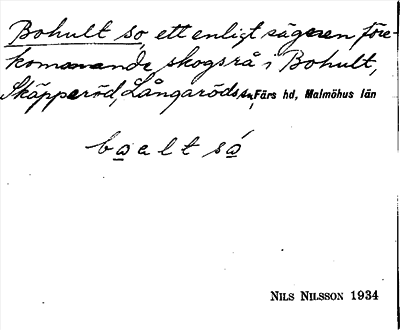 Bohult so, ett enligt sägnen före-
kommande skogsrå i Bohult,
Skäpperöd, Långaröds sn, Färs hd, Malmöhus län
boalt só
NILS NILSSON 1934